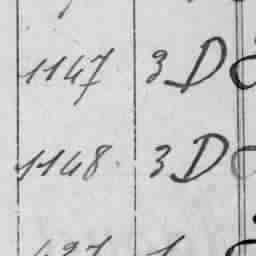 1147 3 D
1148 3 D